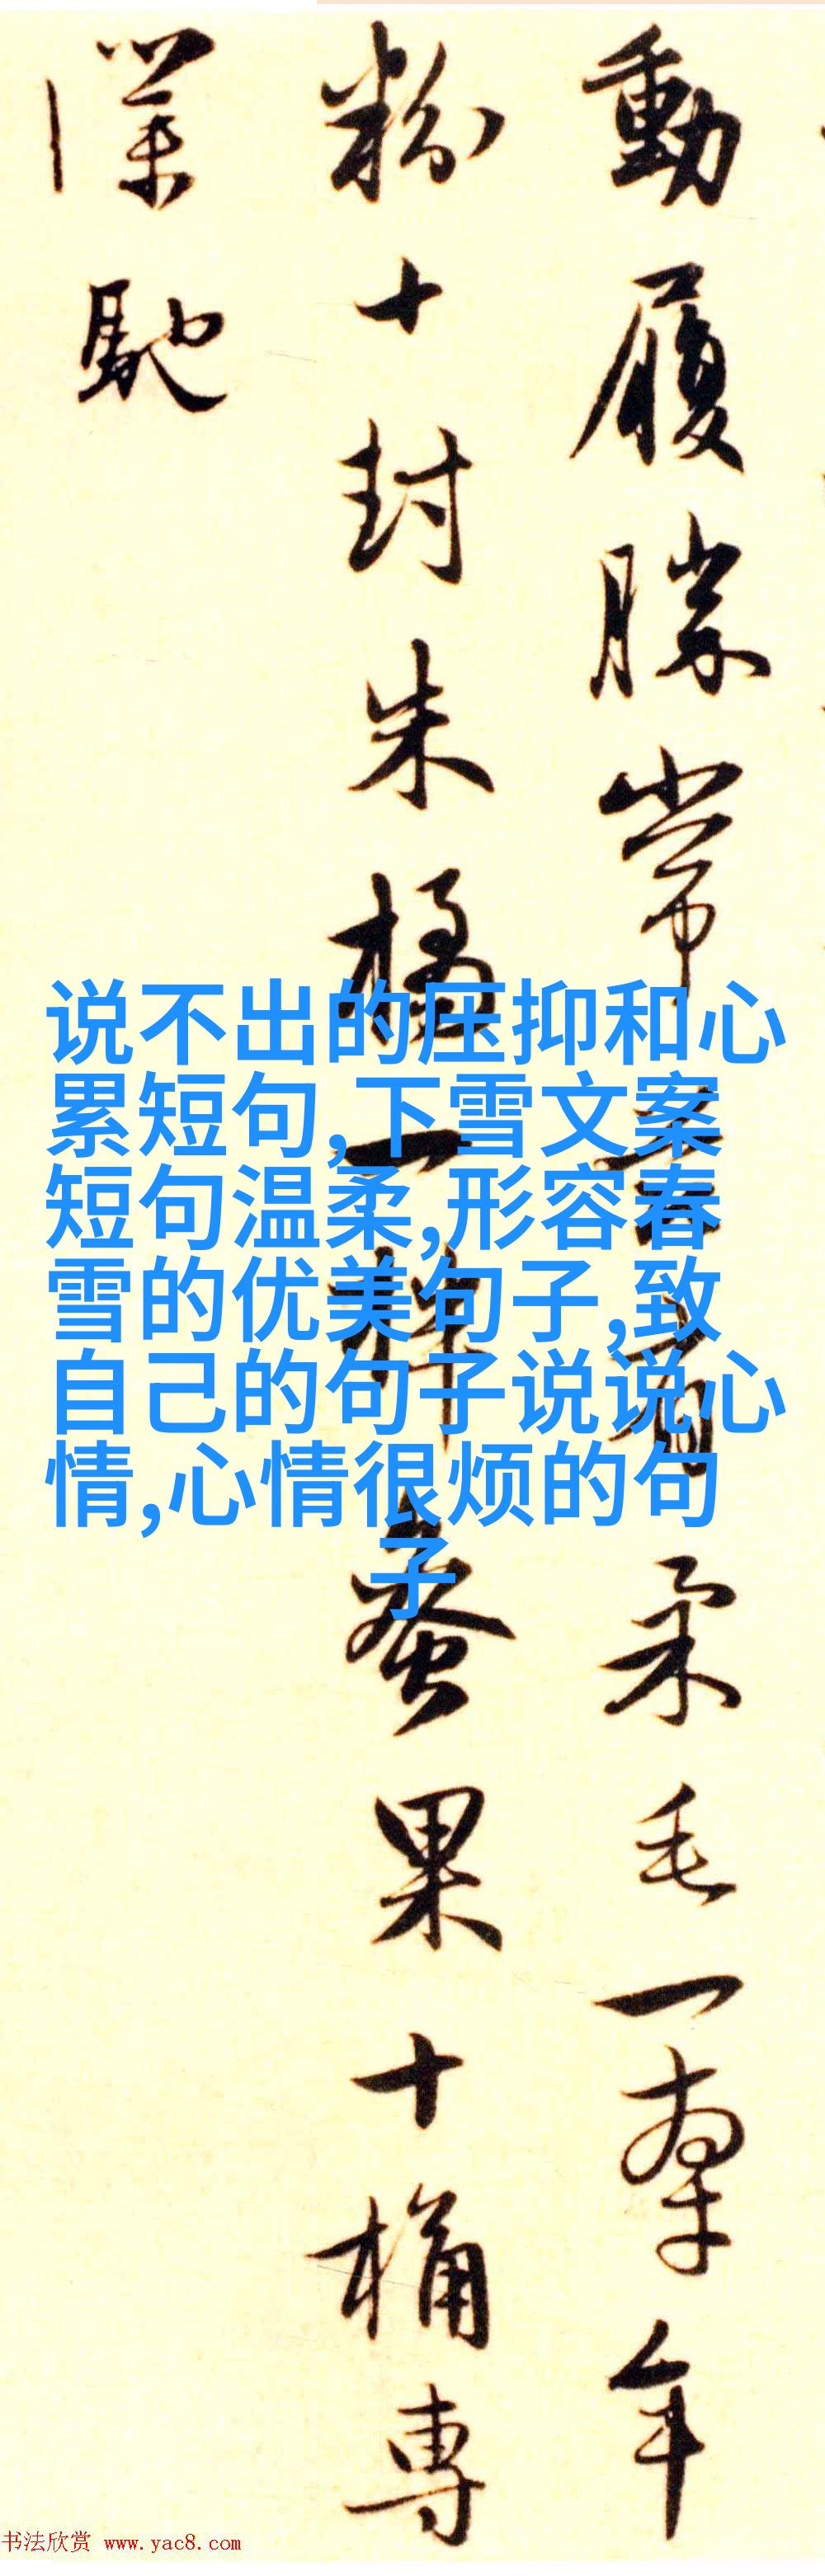 動履勝常
柔毛一
年
粉十封朱橘一
蚕果十桶専
僕馳
说不出的压抑和心
累短句,下雪文案
短句温柔,形容春
雪的优美句子,致
自己的句子说说心
情,心情很烦的句
子
书法欣赏 www.yac8.com